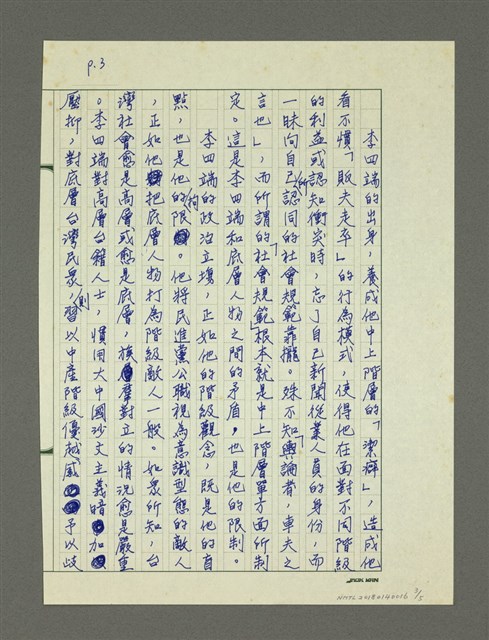 p.3
李四端的出身，養成他中上階層的「潔癖」，造成他
看不慣「販夫走卒」的行為模式，使得他在面對不同階級
的利益或認知衝突時，忘了自己新聞從業人員的身份，而
一昧向自己所認同的社會規範靠攏。殊不知輿論者，車夫之
言也」，而所謂的「社會規範」根本就是中上階層單方面所制
定。這是李四端和底層人物之間的矛盾，也是他的限制。
李四端的政治立場，正如他的階級觀念，既是他的盲
點，也是他的侷限。他將民進黨公職視為意識型態的敵人
，正如他把底層人物打為階級敵人一般。如眾所知，台
灣社會愈是高層或愈是底層，族羣對立的情況愈是嚴重
。李四端對高層台籍人士，慣用大中國沙文主義暗加
壓抑，對底層台灣民眾，則習以中產階級優越感予以歧
NMTL20180140016 3/5